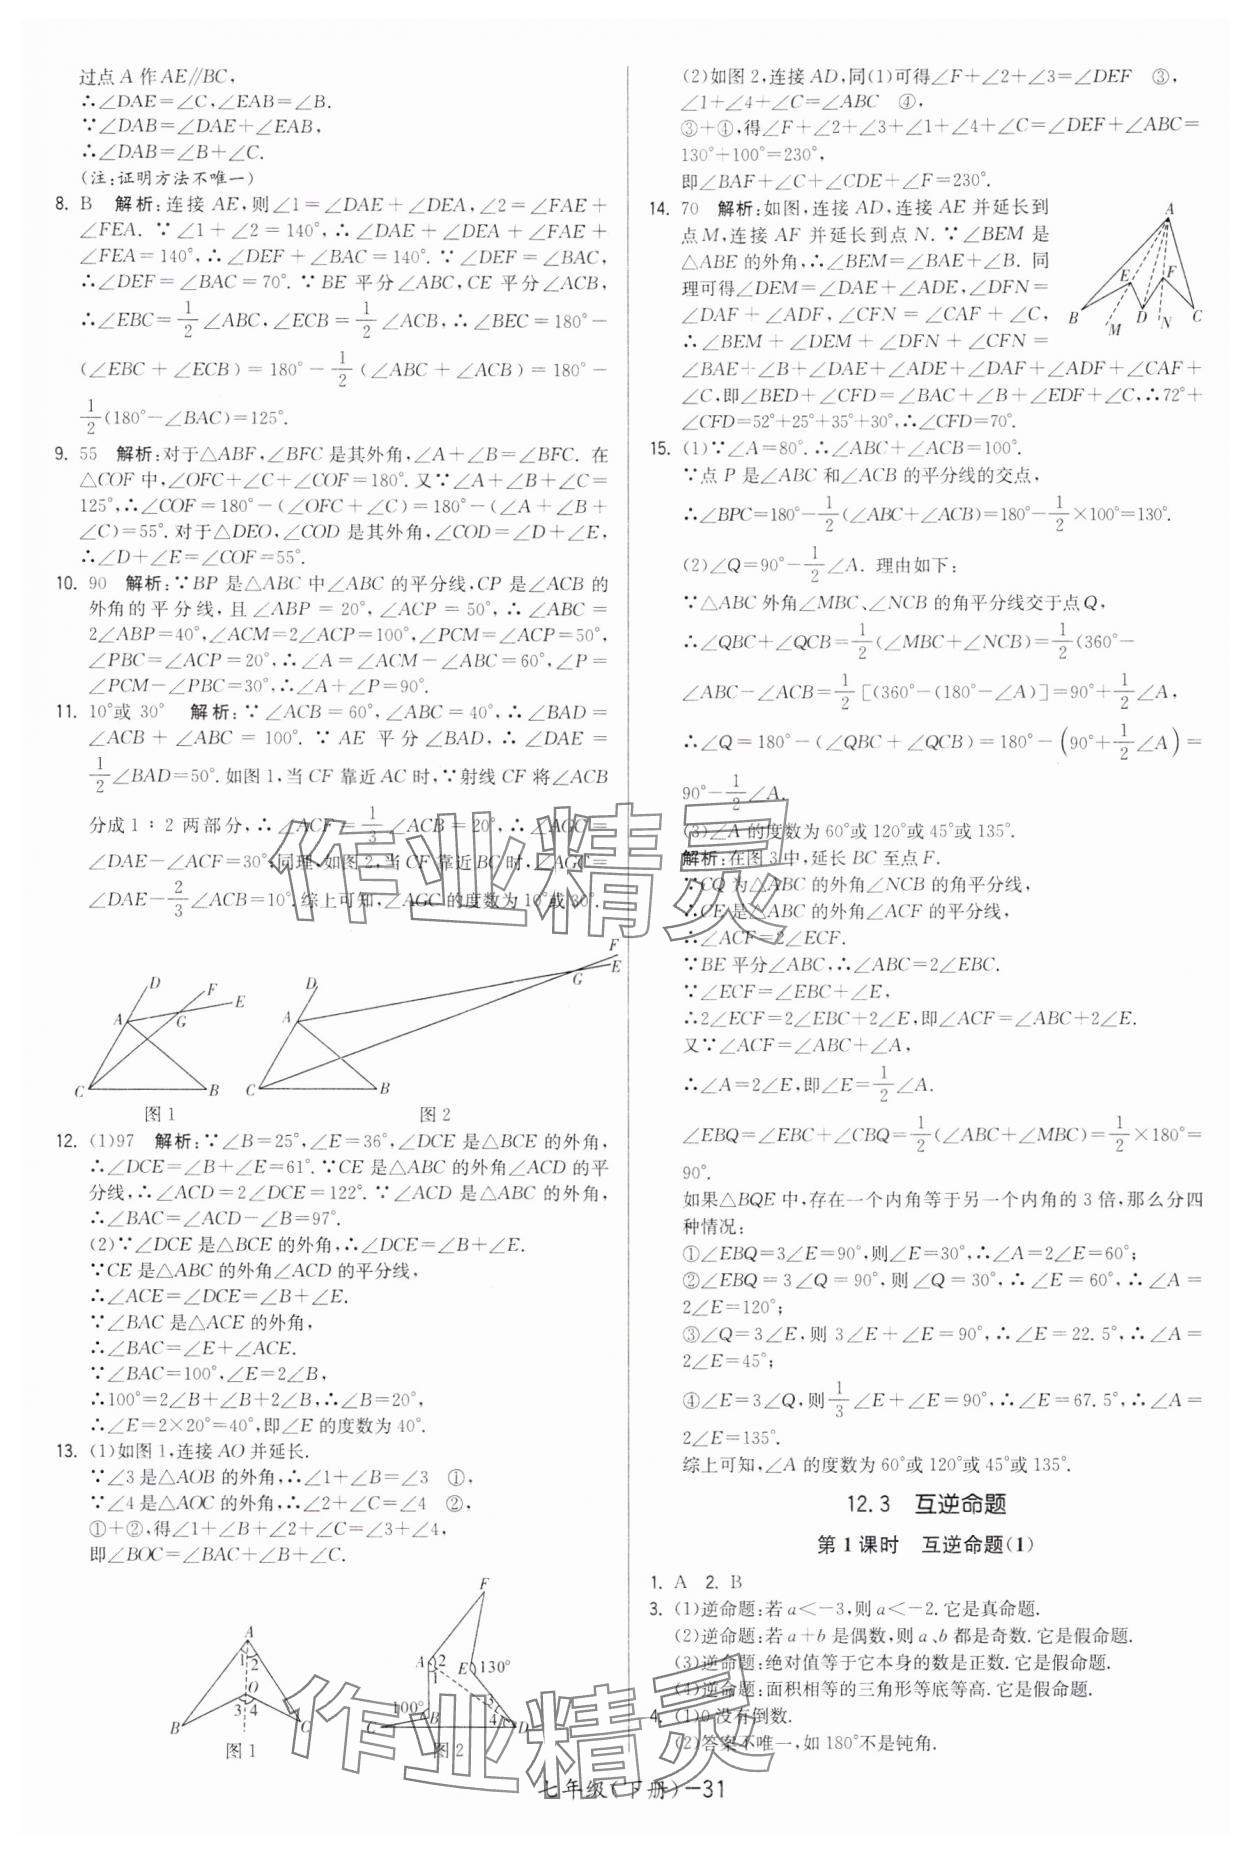 过点 A 作 AE∥BC,
∴∠DAE=∠C,∠EAB=∠B.
∵∠DAB=∠DAE+∠EAB,
∴∠DAB=∠B+∠C.
(注:证明方法不唯一)
8. B 解析:连接 AE,则∠1=∠DAE+∠DEA,∠2=∠FAE+
∠FEA. ∵∠1+∠2=140°,∴∠DAE+∠DEA+∠FAE+
∠FEA=140°,∴∠DEF+∠BAC=140°. ∵∠DEF=∠BAC,
∴∠DEF=∠BAC=70°. ∵BE 平分∠ABC,CE 平分∠ACB,
∴∠EBC=1/2∠ABC,∠ECB=1/2∠ACB,∴∠BEC=180°-
(∠EBC+∠ECB)=180°-1/2(∠ABC+∠ACB)=180°-
1/2(180°-∠BAC)=125°.
9. 55 解析:对于△ABF,∠BFC 是其外角,∠A+∠B=∠BFC. 在
△COF 中,∠OFC+∠C+∠COF=180°. 又∵∠A+∠B+∠C=
125°,∴∠COF=180°-(∠OFC+∠C)=180°-(∠A+∠B+
∠C)=55°. 对于△DEO,∠COD 是其外角,∠COD=∠D+∠E,
∴∠D+∠E=∠COF=55°.
10. 90 解析:∵BP 是△ABC 中∠ABC 的平分线,CP 是∠ACB 的
外角的平分线,且∠ABP=20°,∠ACP=50°,∴∠ABC=
2∠ABP=40°,∠ACM=2∠ACP=100°,∠PCM=∠ACP=50°,
∠PBC=∠ACP=20°,∴∠A=∠ACM-∠ABC=60°,∠P=
∠PCM-∠PBC=30°,∴∠A+∠P=90°.
11. 10°或 30° 解析:∵∠ACB=60°,∠ABC=40°,∴∠BAD=
∠ACB+∠ABC=100°. ∵AE 平分∠BAD,∴∠DAE=
1/2∠BAD=50°. 如图 1,当 CF 靠近 AC 时,∵射线 CF 将∠ACB
分成 1∶2 两部分,∴∠ACF=1/3∠ACB=20°,∴∠AGC=
∠DAE-∠ACF=30°;同理,如图 2,当 CF 靠近 BC 时,∠AGC=
∠DAE-2/3∠ACB=10°. 综上可知,∠AGC 的度数为 10°或 30°.
D F E A G C B
图 1
D F E A G C B
图 2
12. (1)97 解析:∵∠B=25°,∠E=36°,∠DCE 是△BCE 的外角,
∴∠DCE=∠B+∠E=61°. ∵CE 是△ABC 的外角∠ACD 的平
分线,∴∠ACD=2∠DCE=122°. ∵∠ACD 是△ABC 的外角,
∴∠BAC=∠ACD-∠B=97°.
(2)∵∠DCE 是△BCE 的外角,∴∠DCE=∠B+∠E.
∵CE 是△ABC 的外角∠ACD 的平分线,
∴∠ACE=∠DCE=∠B+∠E.
∵∠BAC 是△ACE 的外角,
∴∠BAC=∠E+∠ACE.
∵∠BAC=100°,∠E=2∠B,
∴100°=2∠B+∠B+2∠B,∴∠B=20°,
∴∠E=2×20°=40°,即∠E 的度数为 40°.
13. (1)如图 1,连接 AO 并延长.
∵∠3 是△AOB 的外角,∴∠1+∠B=∠3 ①,
∵∠4 是△AOC 的外角,∴∠2+∠C=∠4 ②,
①+②,得∠1+∠B+∠2+∠C=∠3+∠4,
即∠BOC=∠BAC+∠B+∠C.
A 1 2 O 3 4 B C
图 1
F A 2 1 E 130° 100° 3 4 C B D
图 2
(2)如图 2,连接 AD,同(1)可得∠F+∠2+∠3=∠DEF ③,
∠1+∠4+∠C=∠ABC ④,
③+④,得∠F+∠2+∠3+∠1+∠4+∠C=∠DEF+∠ABC=
130°+100°=230°,
即∠BAF+∠C+∠CDE+∠F=230°.
14. 70 解析:如图,连接 AD,连接 AE 并延长到
点 M,连接 AF 并延长到点 N. ∵∠BEM 是
△ABE 的外角,∴∠BEM=∠BAE+∠B. 同
理可得∠DEM=∠DAE+∠ADE,∠DFN=
∠DAF+∠ADF,∠CFN=∠CAF+∠C,
∴∠BEM+∠DEM+∠DFN+∠CFN=
∠BAE+∠B+∠DAE+∠ADE+∠DAF+∠ADF+∠CAF+
∠C,即∠BED+∠CFD=∠BAC+∠B+∠EDF+∠C,∴72°+
∠CFD=52°+25°+35°+30°,∴∠CFD=70°.
A E F B M D N C
15. (1)∵∠A=80°. ∴∠ABC+∠ACB=100°.
∵点 P 是∠ABC 和∠ACB 的平分线的交点,
∴∠BPC=180°-1/2(∠ABC+∠ACB)=180°-1/2×100°=130°.
(2)∠Q=90°-1/2∠A. 理由如下:
∵△ABC 外角∠MBC、∠NCB 的角平分线交于点 Q,
∴∠QBC+∠QCB=1/2(∠MBC+∠NCB)=1/2(360°-
∠ABC-∠ACB=1/2[(360°-(180°-∠A)]=90°+1/2∠A,
∴∠Q=180°-(∠QBC+∠QCB)=180°-(90°+1/2∠A)=
90°-1/2∠A.
(3)∠A 的度数为 60°或 120°或 45°或 135°.
解析:在图 3 中,延长 BC 至点 F.
∵CQ 为△ABC 的外角∠NCB 的角平分线,
∴CE 是△ABC 的外角∠ACF 的平分线,
∴∠ACF=2∠ECF.
∵BE 平分∠ABC,∴∠ABC=2∠EBC.
∵∠ECF=∠EBC+∠E,
∴2∠ECF=2∠EBC+2∠E,即∠ACF=∠ABC+2∠E.
又∵∠ACF=∠ABC+∠A,
∴∠A=2∠E,即∠E=1/2∠A.
∠EBQ=∠EBC+∠CBQ=1/2(∠ABC+∠MBC)=1/2×180°=
90°.
如果△BQE 中,存在一个内角等于另一个内角的 3 倍,那么分四
种情况:
①∠EBQ=3∠E=90°,则∠E=30°,∴∠A=2∠E=60°;
②∠EBQ=3∠Q=90°,则∠Q=30°,∴∠E=60°,∴∠A=
2∠E=120°;
③∠Q=3∠E,则 3∠E+∠E=90°,∴∠E=22.5°,∴∠A=
2∠E=45°;
④∠E=3∠Q,则1/3∠E+∠E=90°,∴∠E=67.5°,∴∠A=
2∠E=135°.
综上可知,∠A 的度数为 60°或 120°或 45°或 135°.
12.3 互逆命题
第 1 课时 互逆命题(1)
1. A 2. B
3. (1)逆命题:若 a<-3,则 a<-2. 它是真命题.
(2)逆命题:若 a+b 是偶数,则 a、b 都是奇数. 它是假命题.
(3)逆命题:绝对值等于它本身的数是正数. 它是假命题.
(4)逆命题:面积相等的三角形等底等高. 它是假命题.
4. (1)0 没有倒数.
(2)答案不唯一,如 180°不是钝角.
七年级(下册)-31
作业精灵
作业精灵